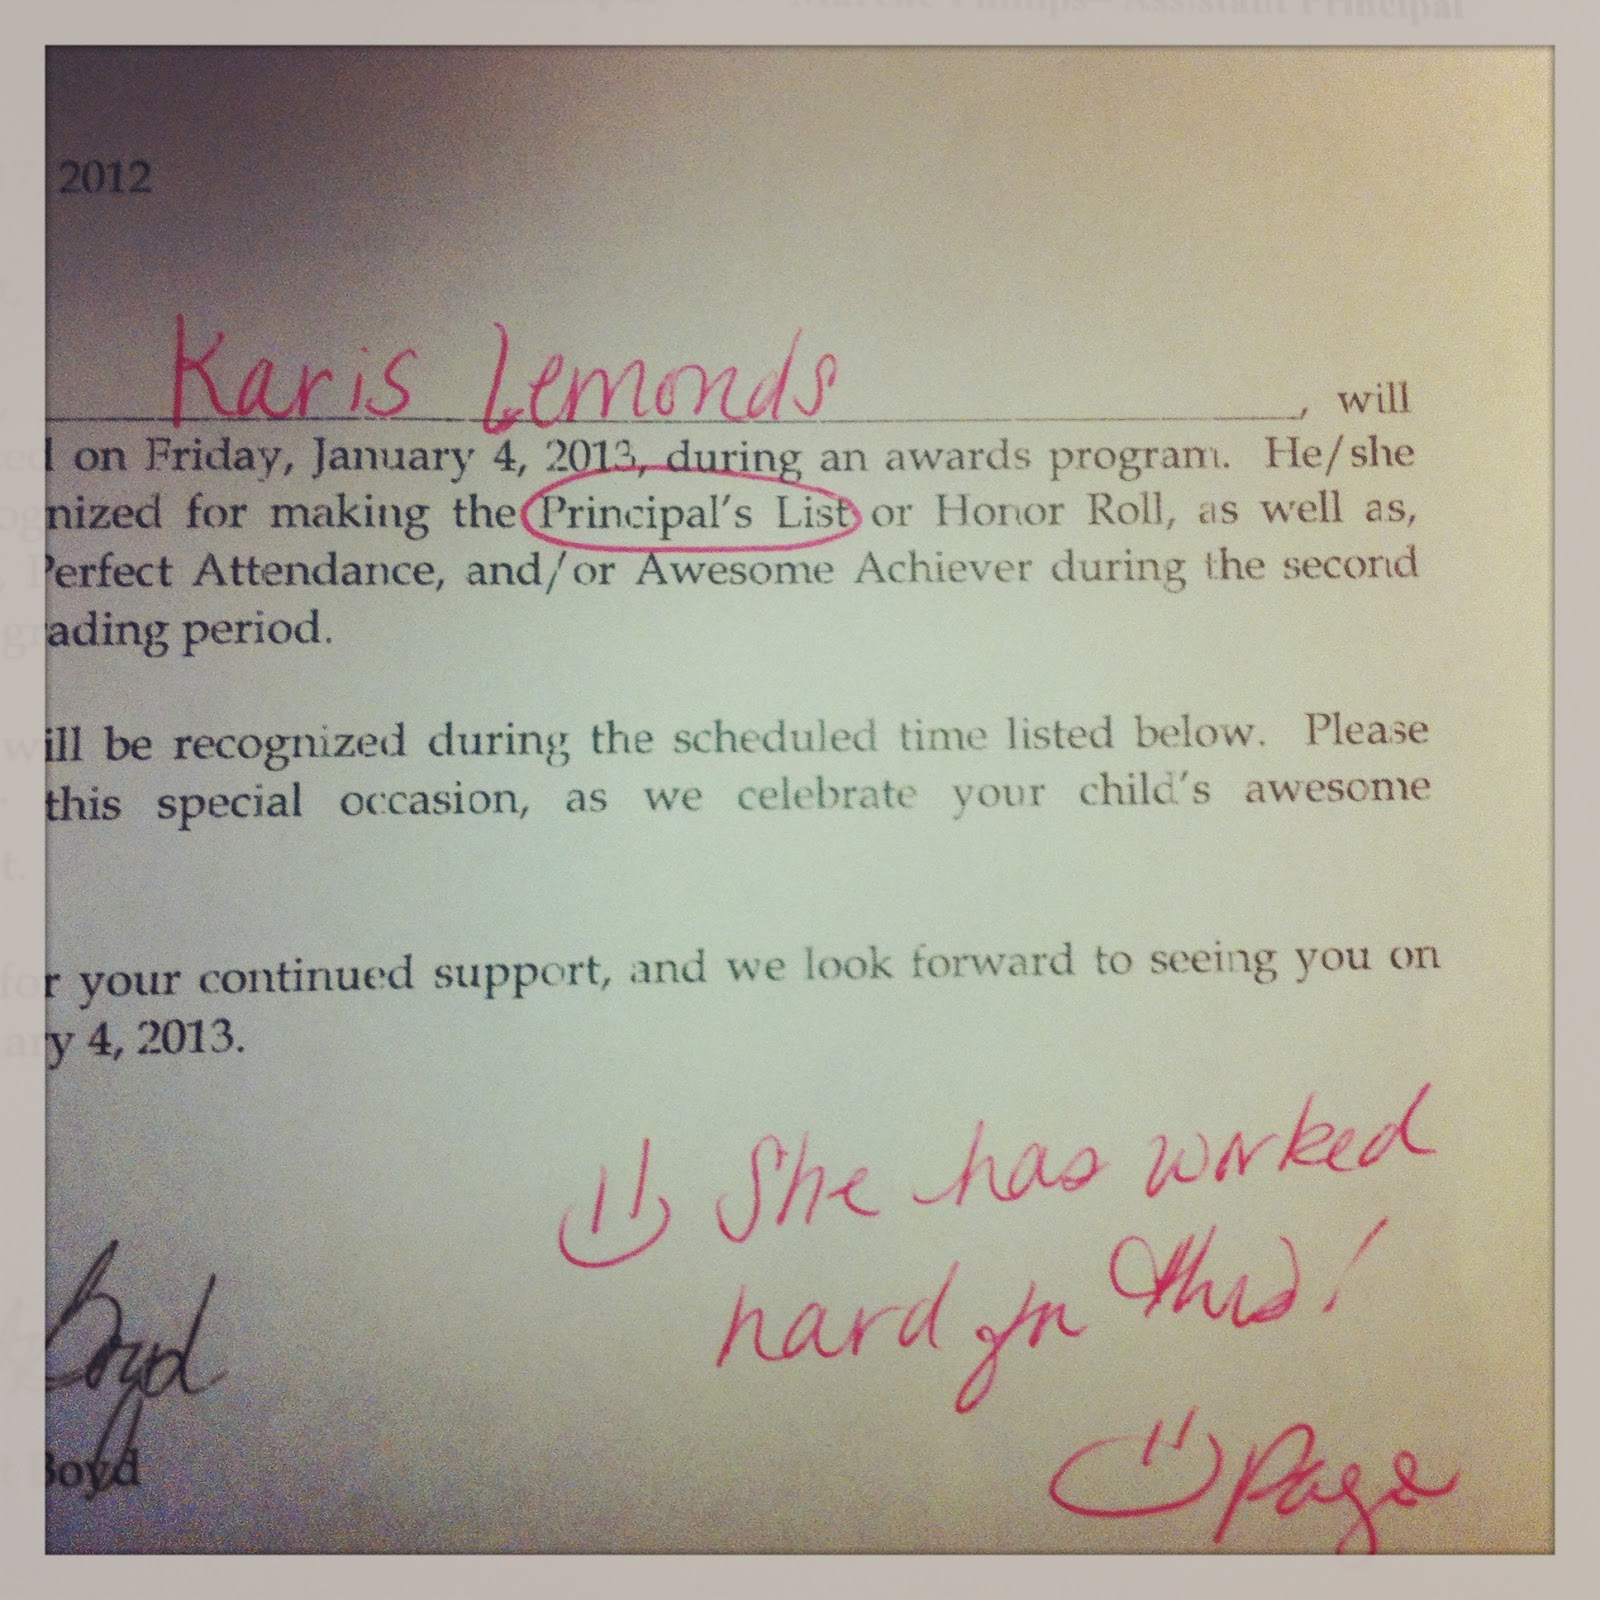 2012
Karis Lemonds, will
on Friday, January 4, 2013, during an awards program. He/she
nized for making the Principal's List or Honor Roll, as well as,
Perfect Attendance, and/or Awesome Achiever during the second
ading period.
ill be recognized during the scheduled time listed below. Please
this special occasion, as we celebrate your child's awesome
r your continued support, and we look forward to seeing you on
y 4, 2013.
She has worked
hard for this!
Boyd
Page
Boyd